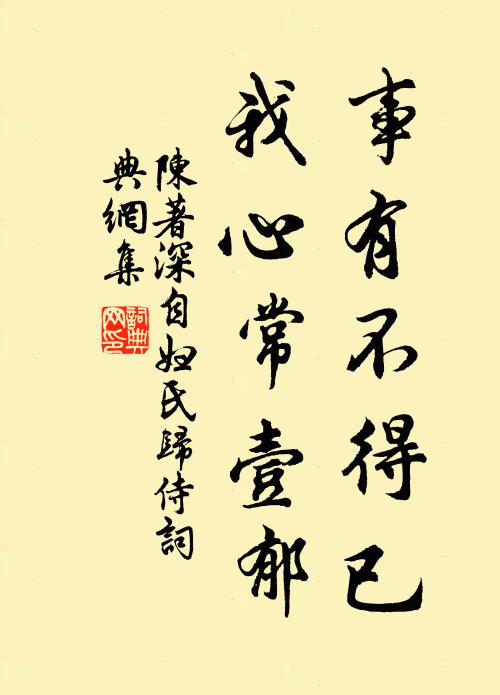 事有不得已
我心常壹郁
陳著深自妞氏歸侍詞
典網集
詞典
网印